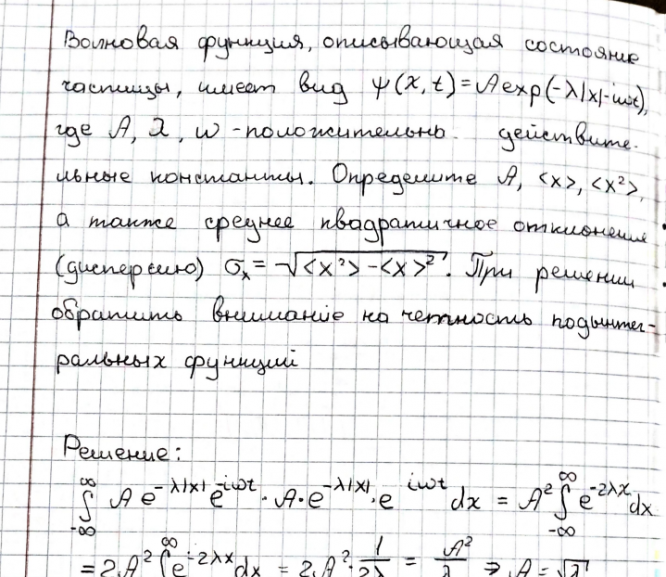 Волновая функция, описывающая состояние
частицы, имеет вид ψ(x,t)=Aexp(-λ|x|-iωt),
где A, λ, ω -положительно. действите-
льные константы. Определите A, <x>, <x²>,
а также среднее квадратичное отклонение
(дисперсию) σₓ = √(<x²> - <x>²). При решении
обратить внимание на четность подынтег-
ральных функций
Решение:
∫_{-∞}^{∞} A e^{-λ|x|} e^{-iωt} · A · e^{-λ|x|} · e^{iωt} dx = A² ∫_{-∞}^{∞} e^{-2λx} dx
= 2A² ∫^{∞} e^{-2λx} dx = 2A² · 1/2λ = A²/λ ⇒ A = √λ